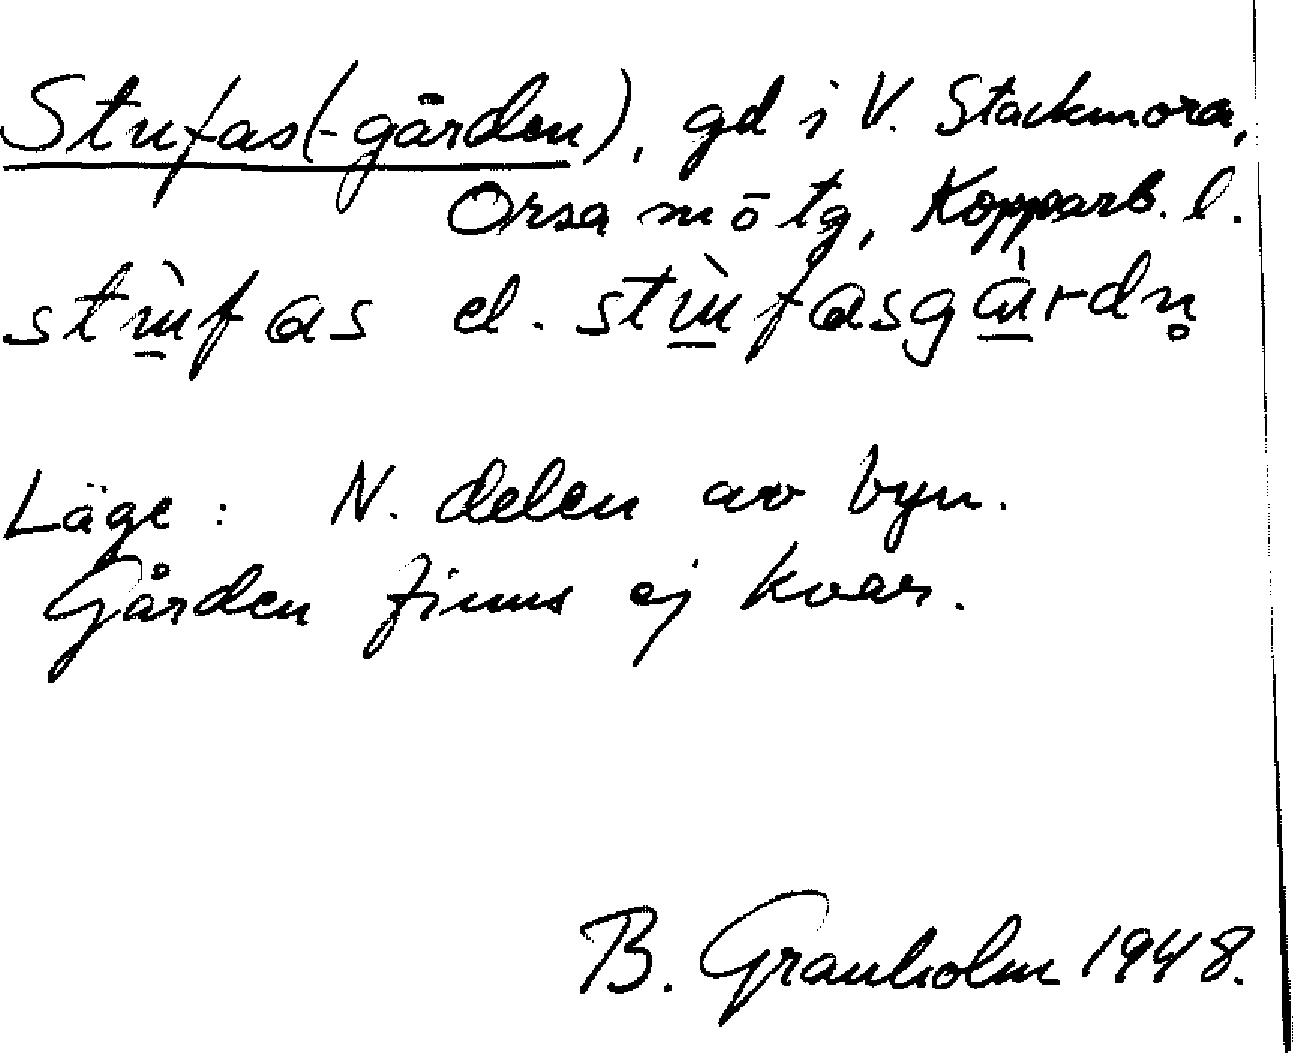 Stufas(-gården), gd i V. Stackmora,
Orsa sn ö tg, Kopparb. l.
stùfas el. stùfasgàrdn̥
Läge : N. delen av byn.
Gården finns ej kvar.
B. Granholm 1948.